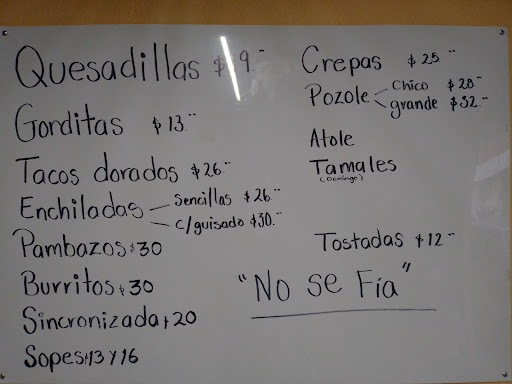 Quesadillas $ 9.--
Gorditas $ 13.--
Tacos dorados $ 26.--
Enchiladas — Sencillas $ 26.--
— c/guisado $30.--
Pambazos $ 30
Burritos $ 30
Sincronizada $ 20
Sopes $13 y 16
Crepas $ 25 --
Pozole < Chico $ 28--
grande $ 32.--
Atole
Tamales
(Domingo)
Tostadas $ 12--
"No se Fía"